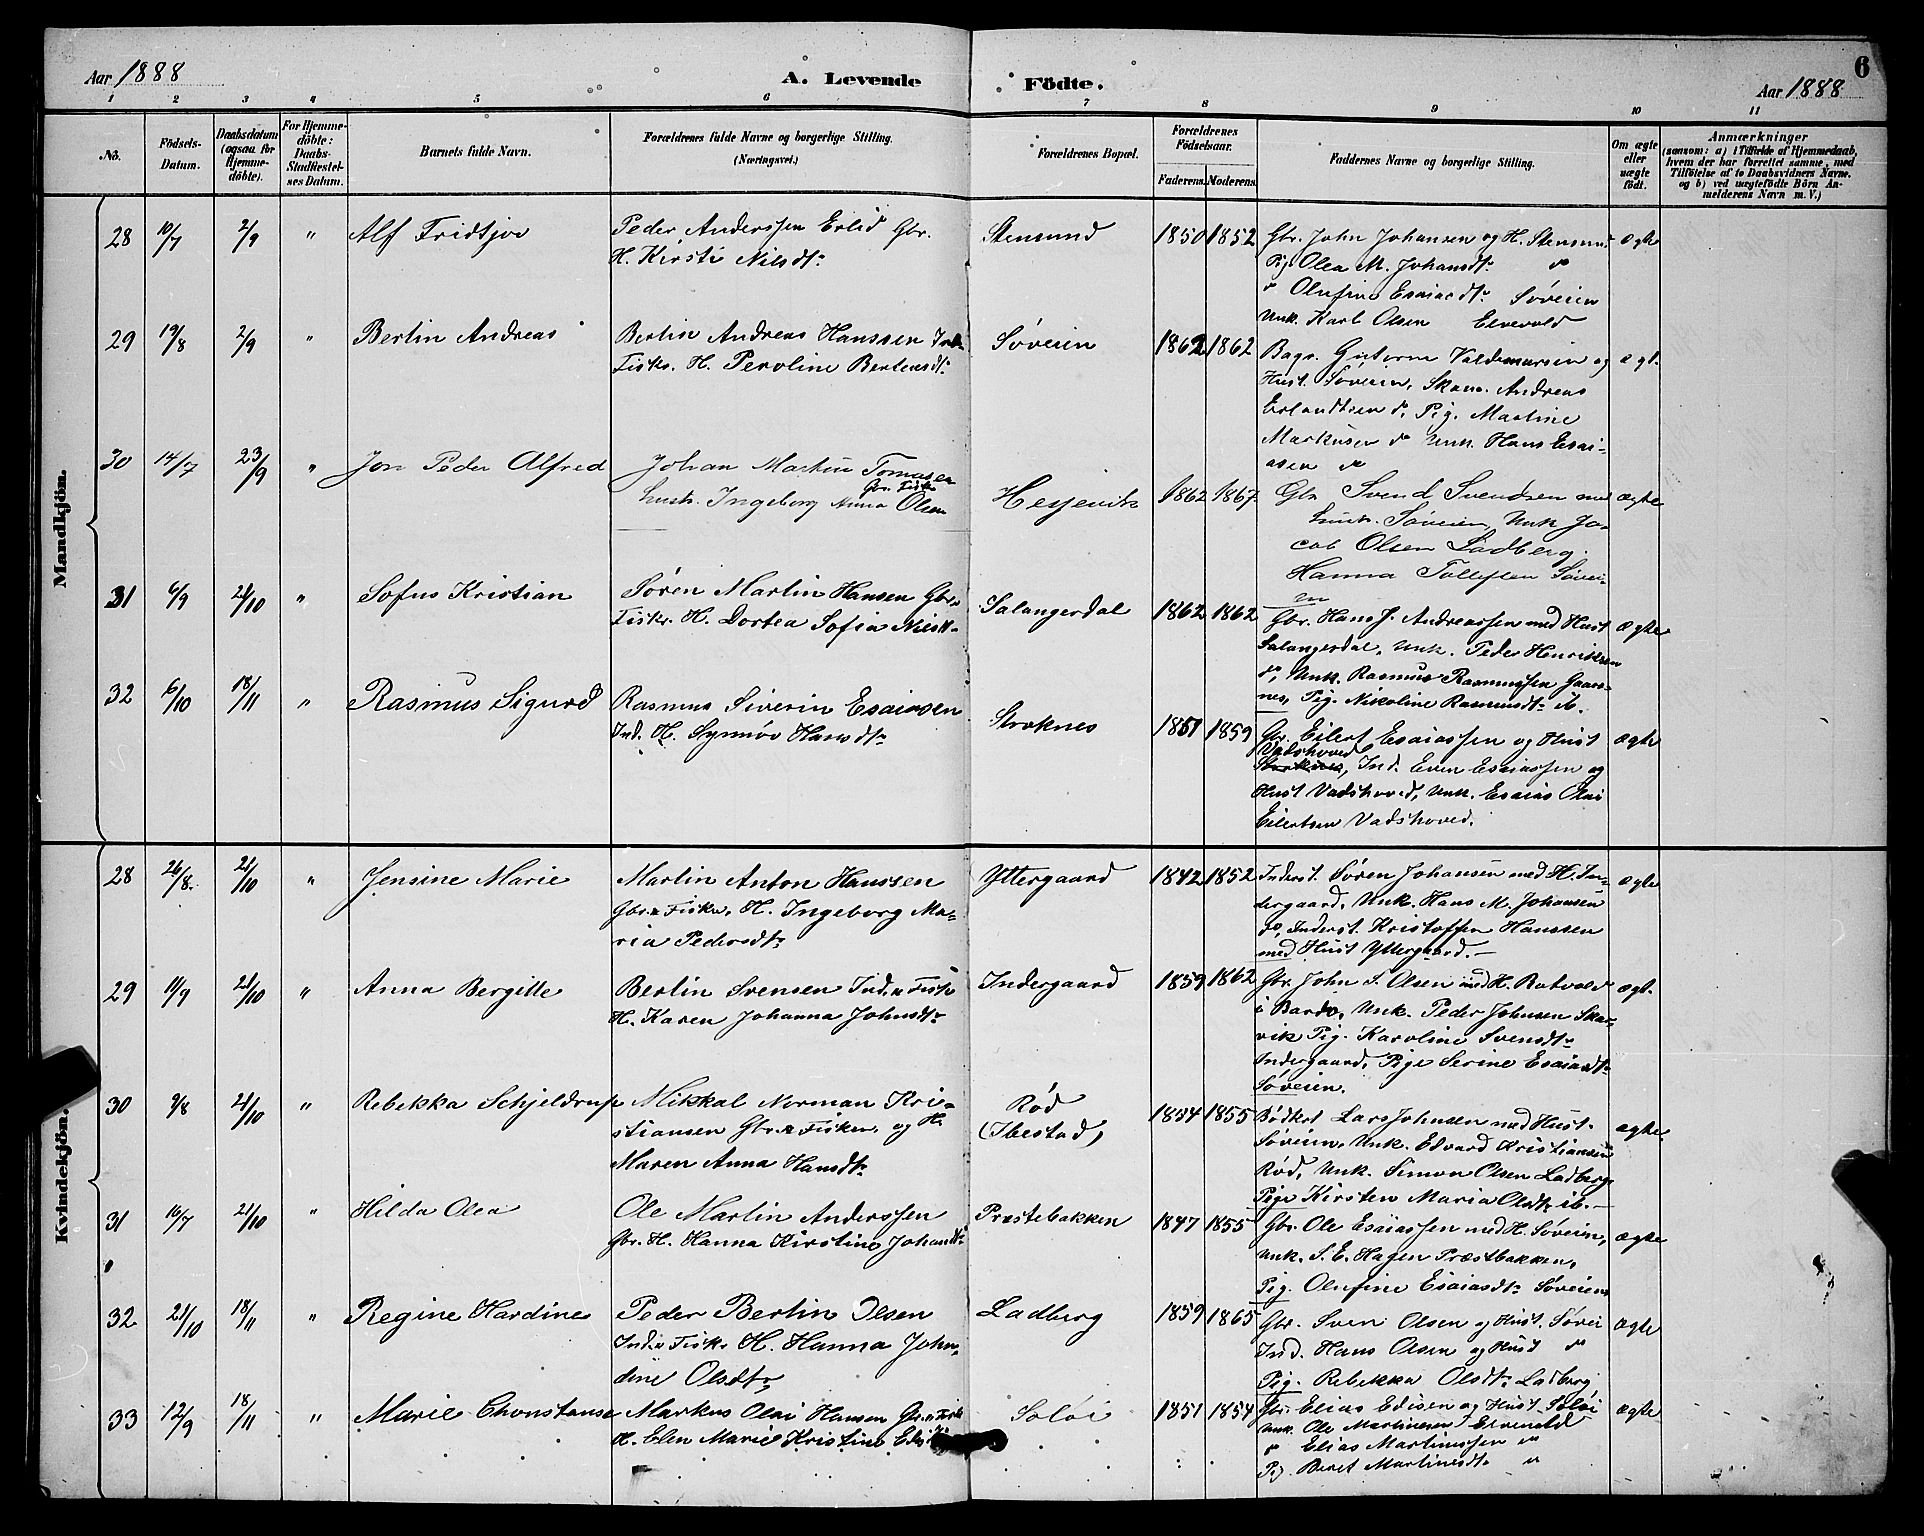 Aar 1888
A. Levende Födte.
6
Aar 1888
1 2 3 4 5 6 7 8 9 10 11
No.
Födsels-
Datum.
Daabsdatum
(ogsaa for
Hjemme-
döbte).
For Hjemme-
döbte:
Daabs-
Stadfæstel-
ses Datum.
Barnets fulde Navn.
Forældrenes fulde Navne og borgerlige Stilling.
(Næringsvei.)
Forældrenes Bopæl.
Forældrenes
Födselsaar.
Faderens. Moderens.
Faddernes Navne og borgerlige Stilling.
Om ægte
eller
uægte
födt.
Anmærkninger
(saasom: a) i Tilfælde af Hjemmedaab,
hvem der har forrettet samme, med
Tilföielse af to Daabsvidners Navne.
og b) ved uægtefödte Börn An-
melderens Navn m. V.)
Mandkjön.
28 10/7 2/9 " Alf Fridtjov
Peder Anderssen Erlid Gbr.
H. Kirsti Nilsdt.
Stensund 1850 1852
Gbr. John Johansen og H. Stensund
Pig. Olea M. Johansdt. do
do Olufine Esaiasdt. Søveien
Unk. Karl Olsen Elvevold
ægte
29 19/8 2/9 " Bertin Andreas
Bertin Andreas Hanssen Ind.
Fisk. H. Peroline Bertensdt.
Søveien 1862 1862
Bags. Guttorm Valdemarsen og
Hust. Søveien, Skom. Andreas
Erlandtsen do, Pig. Martine
Markusen do Unk. Hans Esai-
asen do
ægt.
30 14/7 23/9 " Jon Peder Alfred
Johan Martin Tomasen
Gbr. Fisk.
hust. Ingeborg Anna Olsen
Hesjevik 1862 1867
Gbr Svend Svendsen med
hust. Søveien, Unk Ja-
cob Olsen Ladberg.
Hanna Tollefsen Søvei-
en
ægte
31 6/9 21/10 " Sofus Kristian
Søren Martin Hansen Gbr.
Fisk. H. Dortea Sofia Nilsdt.
Salangerdal 1862 1862
Gbr. Hans J. Andreassen med Hust
Salangerdal, Unk. Peder Henriksen
do, Unk. Rasmus Rasmussen Gaas-
nes, Pig. Nikoline Rasmusdt. ib.
ægte
32 6/10 18/11 " Rasmus Sigurd
Rasmus Siverin Esaiasen
Ind. H. Synnøv Hansdt.
Stroknes 1851 1859
Gbr. Eilert Esaiassen og Hust
Vadshoved
Stroknes, Ind. Even Esaiassen og
Hust Vadshoved, Unk. Esaias Olai
Eilertsen Vadshoved.
ægte
Kvindekjön.
28 26/8 21/10 " Jensine Marie
Martin Anton Hanssen
Gbr. & Fisker, H. Ingeborg Ma-
ria Pedersdt.
Yttergaard 1842 1852
Inderst. Søren Johansen med H. In-
dergaard, Unk. Hans M. Johansen
do, Inderst. Kristoffer Hanssen
med Hust Yttergaard.
ægte
29 11/9 21/10 " Anna Bergitte
Bertin Svensen Ind. & Fisk
H. Karen Johanna Johnsdt.
Indergaard 1859 1862
Gbr. John S. Olsen med H. Rotvold
i Bardo, Unk. Peder Johnsen Skar-
vik Pig. Karoline Svensdt.
Indergaard, Pige Serine Esaiasdt.
Søveien.
ægt.
30 9/8 21/10 " Rebekka Schjeldrup
Mikkal Norman Kri-
stiansen Gbr. & Fisker, og H.
Maren Anna Hansdt.
Rød
(Ibestad) 1854 1855
Bødker Lars Johnsen med Hust.
Søveien, Unk. Edvard Kristiansen
Rød, Unk. Simon Olsen Ladberg
Pige Kirsten Maria Olsdt. ib.
ægte
31 16/7 21/10 " Hilda Olea
Ole Martin Anderssen
Gbr. H. Hanna Kirstine Johansdt.
Præstebakken 1847 1855
Gbr. Ole Esaiassen med H. Søveien,
Unk. S. E. Hagen Præstbakken,
Pig. Olufine Esaiasdt. Søveien
ægte
32 21/10 18/11 " Regine Hardine
Peder Bertin Olsen
Ind. & Fisk. H. Hanna John-
dine Olsdt.
Ladberg 1859 1865
Gbr. Sven Olsen og Hust. Søvei
Ind. Hans Olsen og Hust do
Pig. Rebekka Olsdt. Ladberg
ægte
33 12/9 18/11 " Marie Chonstanse
Markus Olai Hansen Gbr. & Fisk
H. Elen Marie Kristine
Soløi 1851 1854
Gbr. Elias Edisen og Hust Soløi
Unk. Ole Martinesen Elvevold
do Elias Martinessen do
Pig. Beret Martinesdt. do
ægte